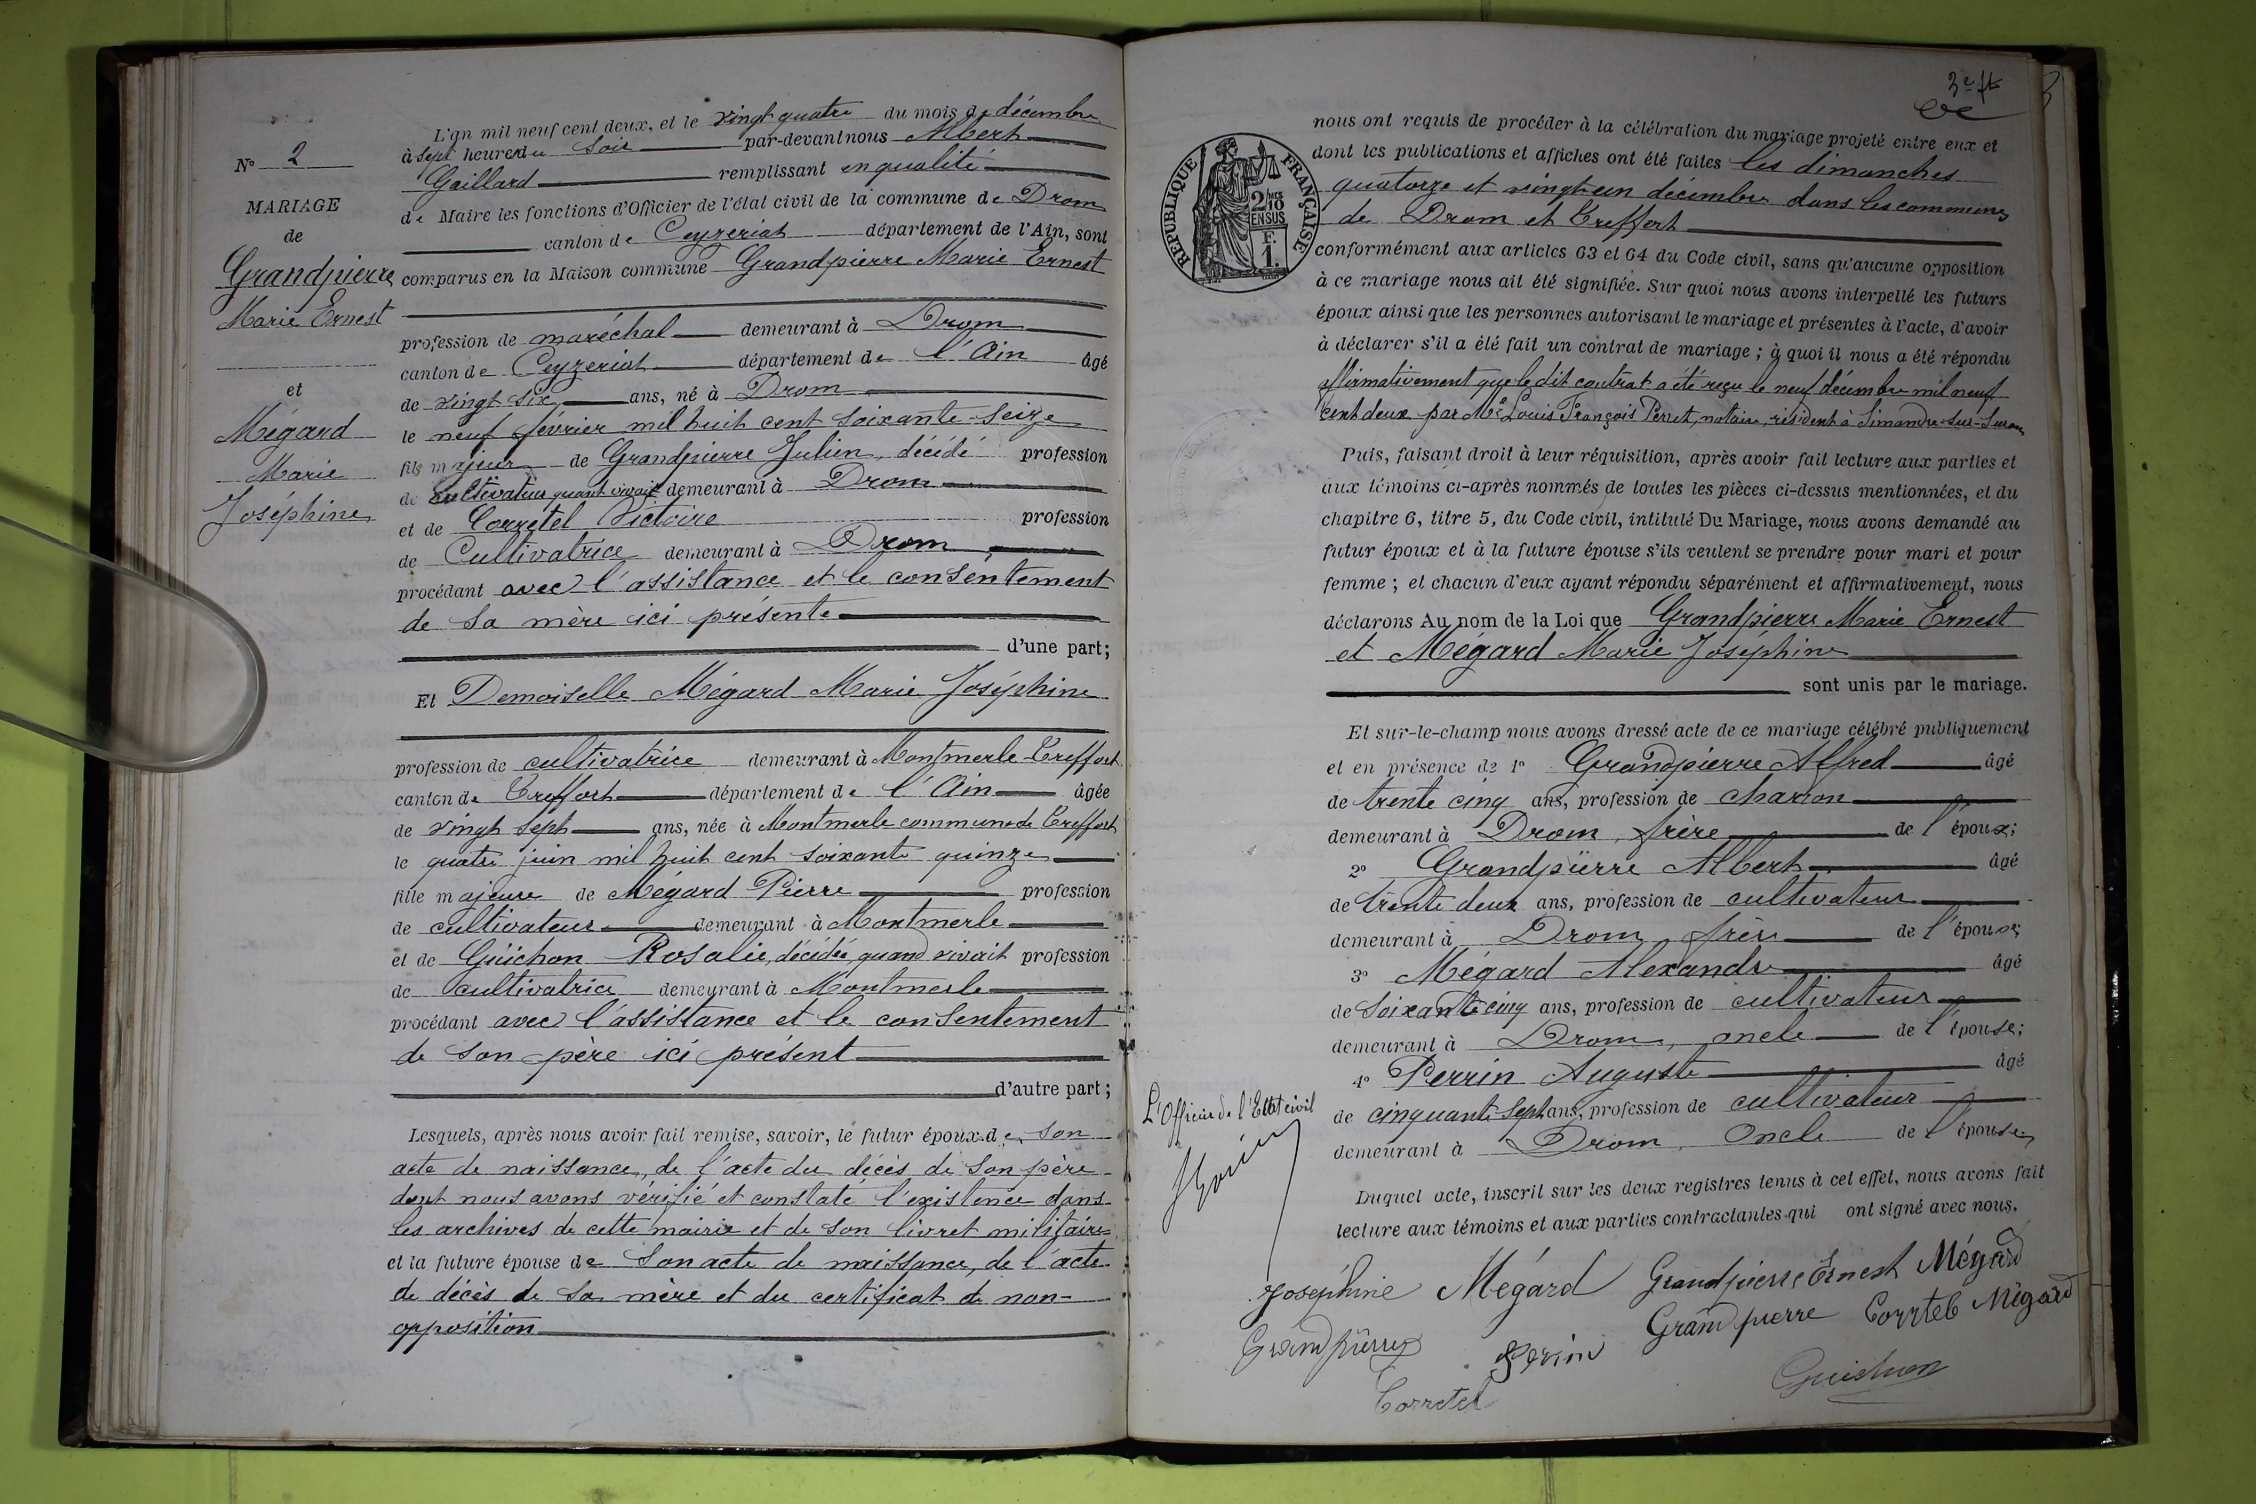 N° 2
MARIAGE
de
Grandpierre
Marie Ernest
et
Mégard
Marie
Joséphine
L'an mil neuf cent deux, et le vingt quatre du mois de décembre
à sept heures du soir par-devant nous Albert
Gaillard remplissant en qualité
de Maire les fonctions d'Officier de l'état civil de la commune de Drom
canton de Ceyzeriat département de l'Ain, sont
comparus en la Maison commune Grandpierre Marie Ernest
profession de maréchal demeurant à Drom
canton de Ceyzeriat département de l'Ain âgé
de vingt six ans, né à Drom
le neuf février mil huit cent soixante-seize
fils majeur de Grandpierre Julien, décédé profession
de Cultivateur quand vivait demeurant à Drom
et de Corretel Victoire profession
de Cultivatrice demeurant à Drom
procédant avec l'assistance et le consentement
de sa mère ici présente
d'une part;
Et Demoiselle Mégard Marie Joséphine
profession de cultivatrice demeurant à Montmerle-Treffort
canton de Treffort département de l'Ain âgée
de vingt sept ans, née à Montmerle commune de Treffort
le quatre juin mil huit cent soixante quinze
fille majeure de Mégard Pierre profession
de cultivateur demeurant à Montmerle
et de Guichon Rosalie, décédée, quand vivait profession
de cultivatrice demeurant à Montmerle
procédant avec l'assistance et le consentement
de son père ici présent
d'autre part;
Lesquels, après nous avoir fait remise, savoir, le futur époux de son
acte de naissance, de l'acte du décès de son père
dont nous avons vérifié et constaté l'existence dans
les archives de cette mairie et de son livret militaire
et la future épouse de son acte de naissance, de l'acte
de décès de sa mère et du certificat de non-
opposition
3e ft
RÉPUBLIQUE FRANÇAISE
2/10 EN SUS
F. 1.
nous ont requis de procéder à la célébration du mariage projeté entre eux et
dont les publications et affiches ont été faites les dimanches
quatorze et vingt-un décembre dans les communes
de Drom et Treffort
conformément aux articles 63 et 64 du Code civil, sans qu'aucune opposition
à ce mariage nous ait été signifiée. Sur quoi nous avons interpellé les futurs
époux ainsi que les personnes autorisant le mariage et présentes à l'acte, d'avoir
à déclarer s'il a été fait un contrat de mariage; à quoi il nous a été répondu
affirmativement que le dit contrat a été reçu le neuf décembre mil neuf
cent deux par Me Louis François Perret, notaire, résident à Simandre-sur-Suran
Puis, faisant droit à leur réquisition, après avoir fait lecture aux parties et
aux témoins ci-après nommés de toutes les pièces ci-dessus mentionnées, et du
chapitre 6, titre 5, du Code civil, intitulé Du Mariage, nous avons demandé au
futur époux et à la future épouse s'ils veulent se prendre pour mari et pour
femme; et chacun d'eux ayant répondu séparément et affirmativement, nous
déclarons Au nom de la Loi que Grandpierre Marie Ernest
et Mégard Marie Joséphine
sont unis par le mariage.
Et sur-le-champ nous avons dressé acte de ce mariage célébré publiquement
et en présence de 1° Grandpierre Alfred âgé
de trente cinq ans, profession de charron
demeurant à Drom, frère de l'époux;
2° Grandpierre Albert âgé
de trente deux ans, profession de cultivateur
demeurant à Drom, frère de l'époux;
3° Mégard Alexandre âgé
de soixante cinq ans, profession de cultivateur
demeurant à Drom, oncle de l'épouse;
4° Perrin Auguste âgé
de cinquante sept ans, profession de cultivateur
demeurant à Drom, Oncle de l'épouse
Duquel acte, inscrit sur les deux registres tenus à cet effet, nous avons fait
lecture aux témoins et aux parties contractantes qui ont signé avec nous.
L'Officier de l'Etat civil
Joséphine Mégard Grandpierre Ernest Mégard
Grandpierre Perrin Grandpierre Corretel Mégard
Corretel Guichon